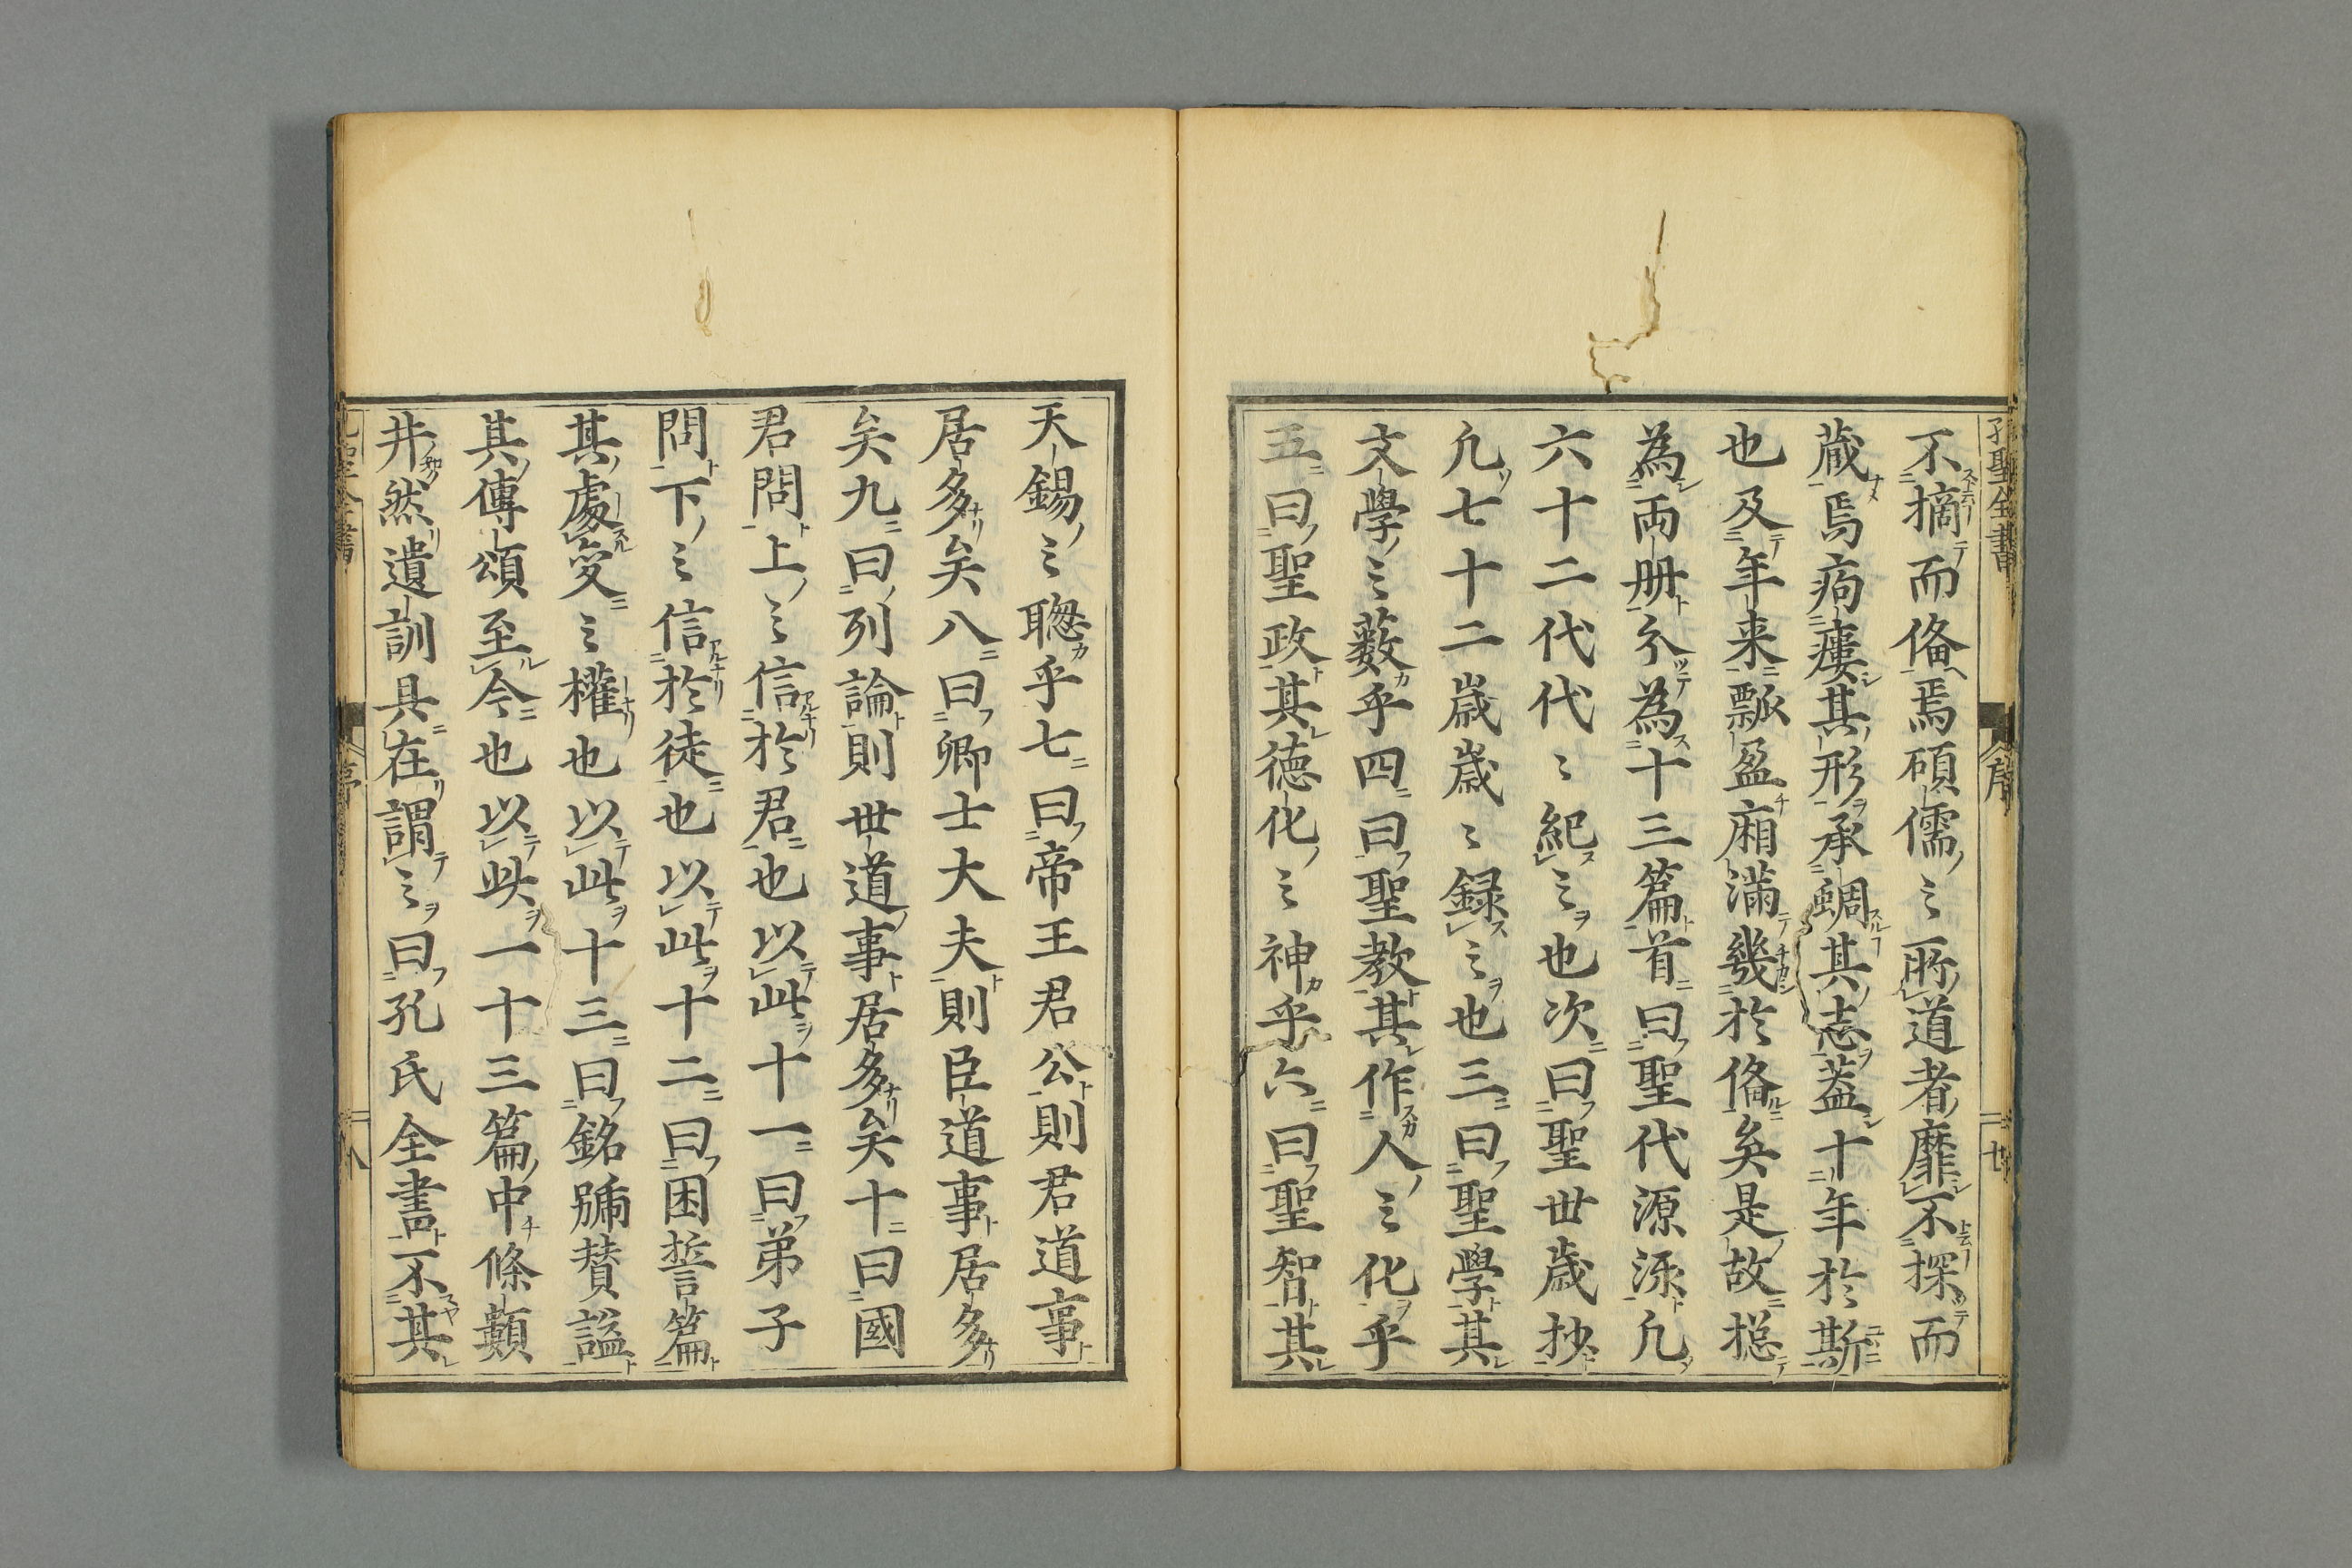 孔聖全書
序
七
不摘而俻焉碩儒之所道者靡不探而
蔵焉痀瘻其形承蜩其志葢十年於斯
也及年来瓢盈廂满幾於俻矣是故捴
為両册分為十三篇首曰聖代源流凢
六十二代代〻紀之也次曰聖世歳抄
凢七十二歳歳〻録之也三曰聖學其
文學之藪乎四曰聖教其作人之化乎
五曰聖政其徳化之神乎六曰聖智其
天錫之聰乎七曰帝王君公則君道事
居多矣八曰卿士大夫則臣道事居多
矣九曰列論則世道事居多矣十曰國
君問上之信於君也以此十一曰弟子
問下之信於徒也以此十二曰困誓篇
其處変之權也以此十三曰銘號賛諡
其傳頌至今也以此一十三篇中條類
井然遺訓具在謂之曰孔氏全書不其
八